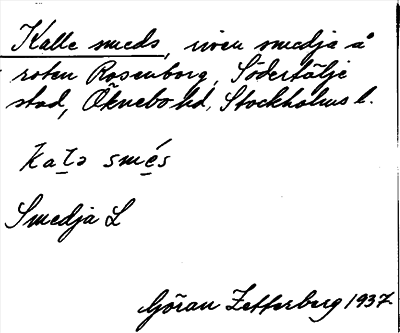 Kalle smeds, riven smedja å
roten Rosenborg, Södertälje
stad, Öknebo hd, Stockholms l.
kaḻə smé̱s
Smedja L
Göran Zetterberg 1937